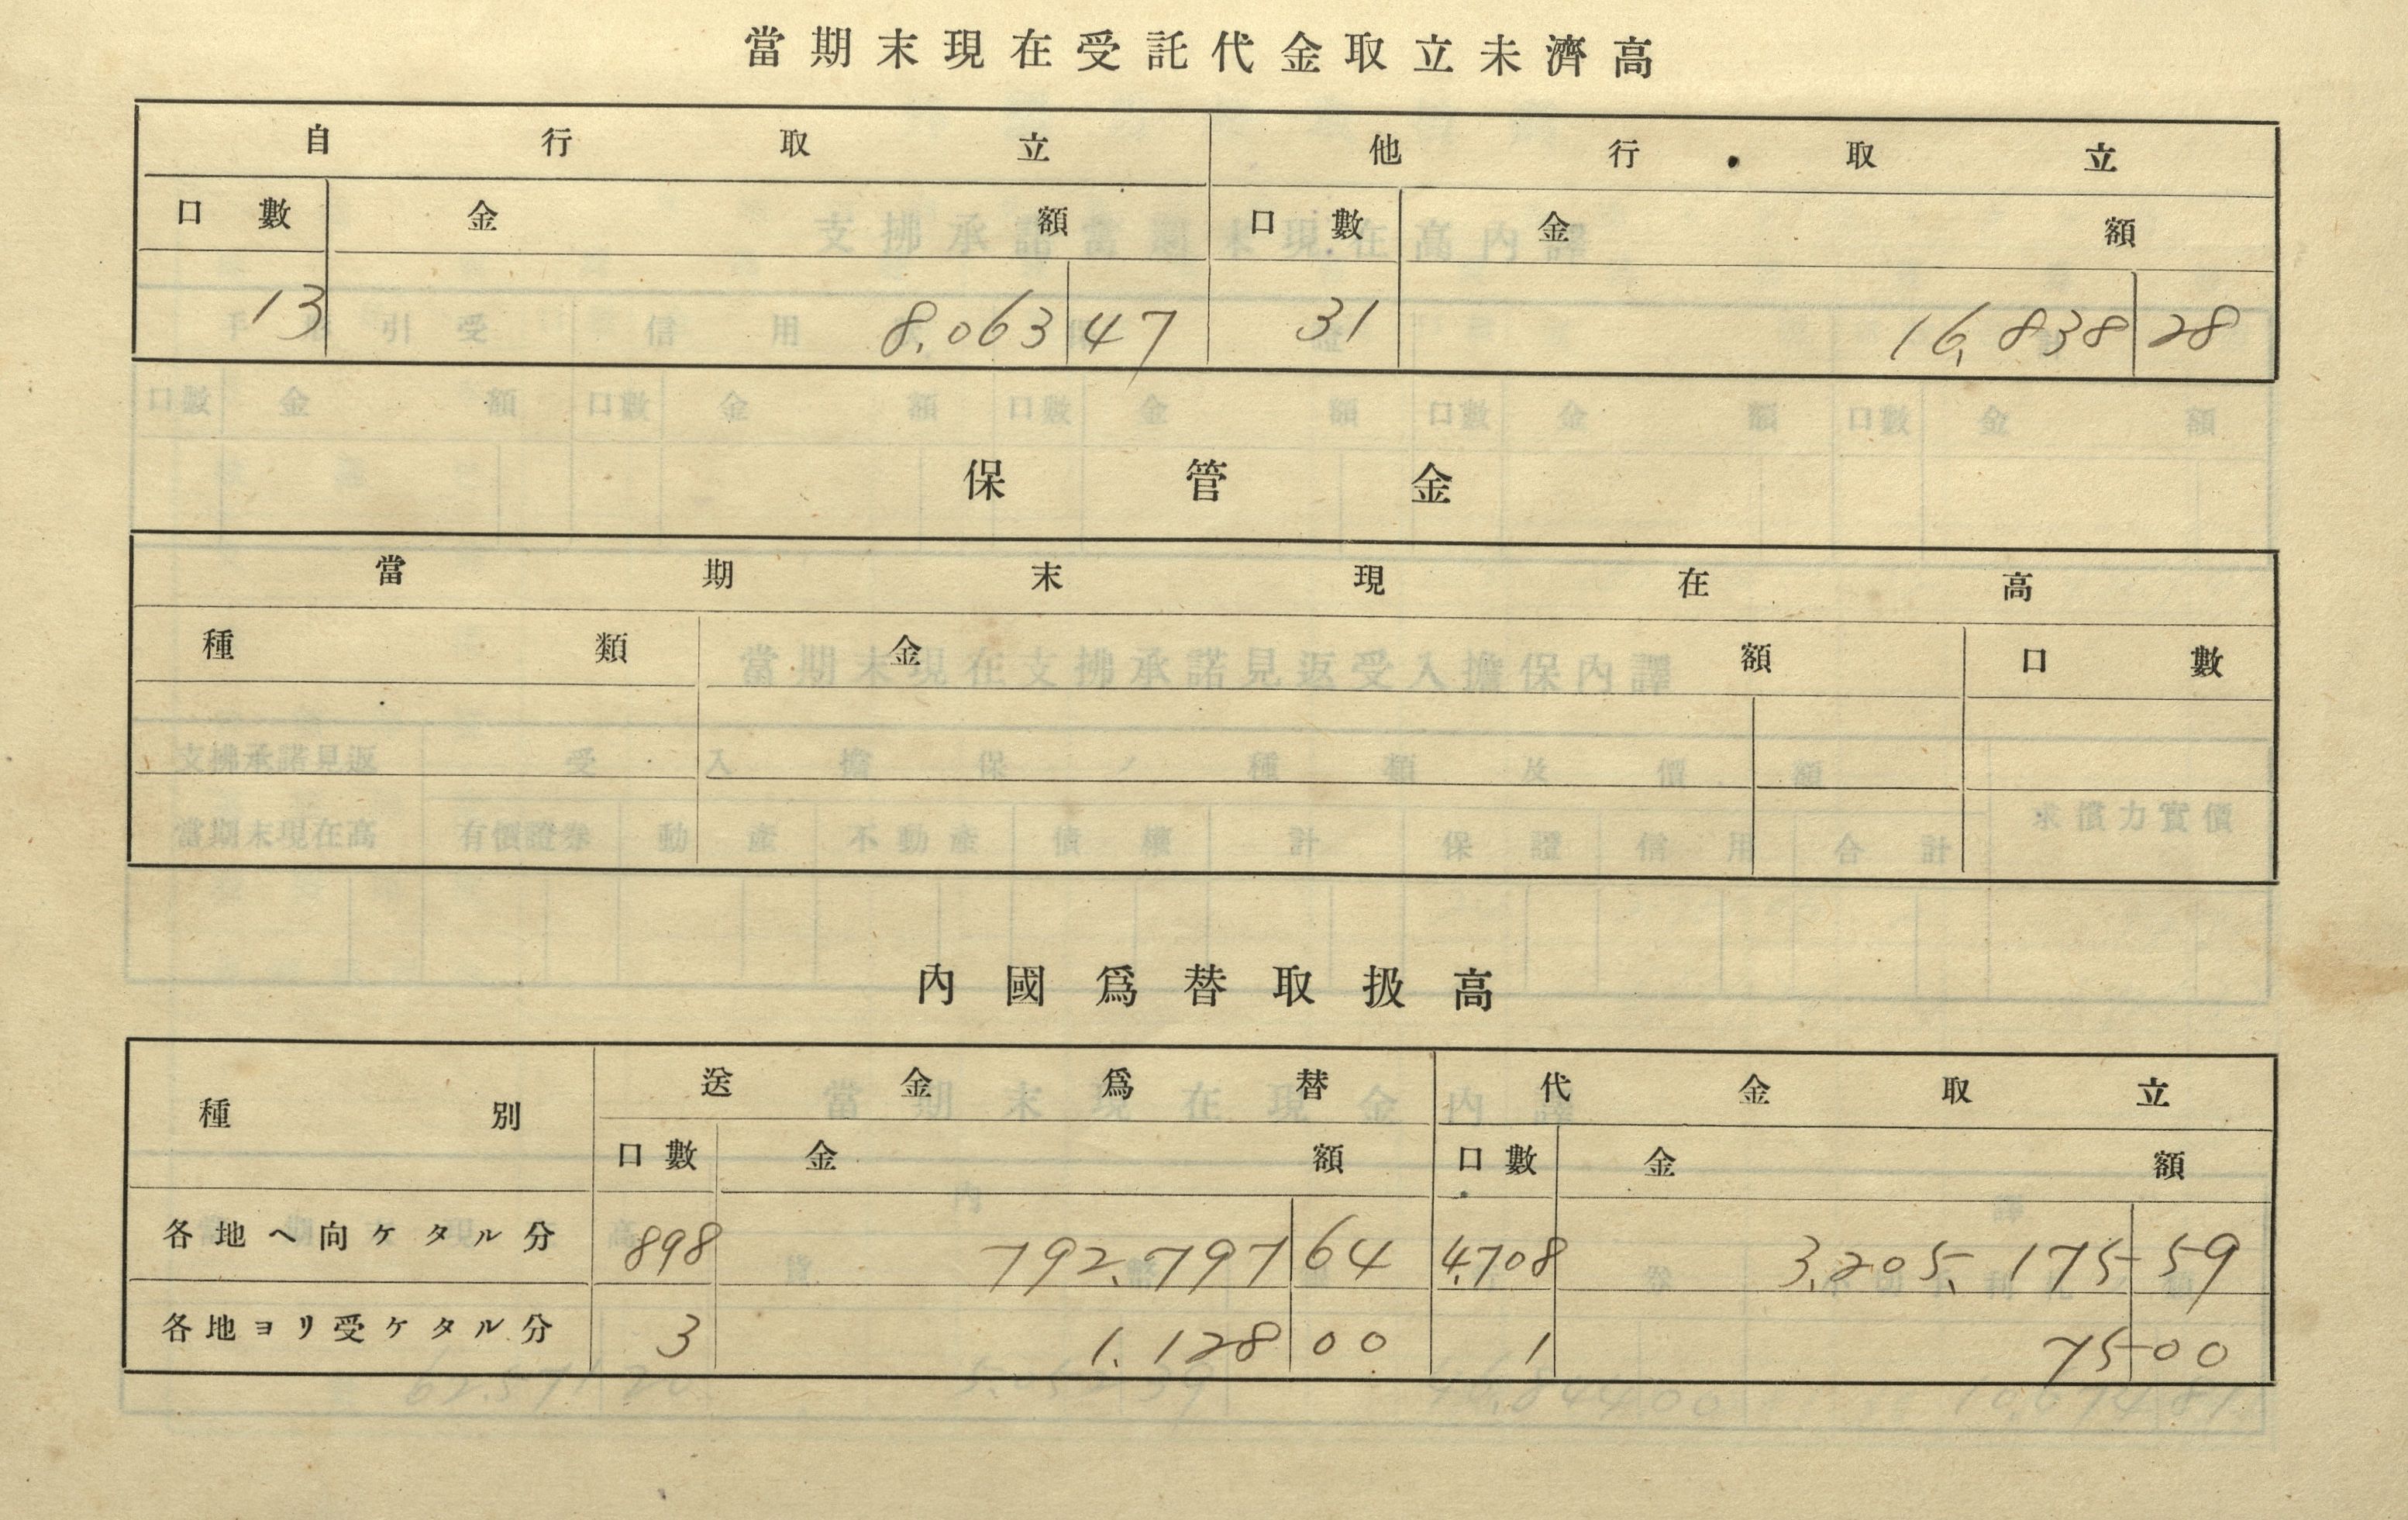 當期末現在受託代金取立未濟高
自行取立 他行取立
口數 金額 口數 金額
13 8,063 47 31 16,838 28
保管金
當期末現在高
種類 金額 口數
內國爲替取扱高
種別 送金爲替 代金取立
口數 金額 口數 金額
各地ヘ向ケタル分 898 792,797 64 4,708 3,205,175 59
各地ヨリ受ケタル分 3 1,128 00 1 75 00